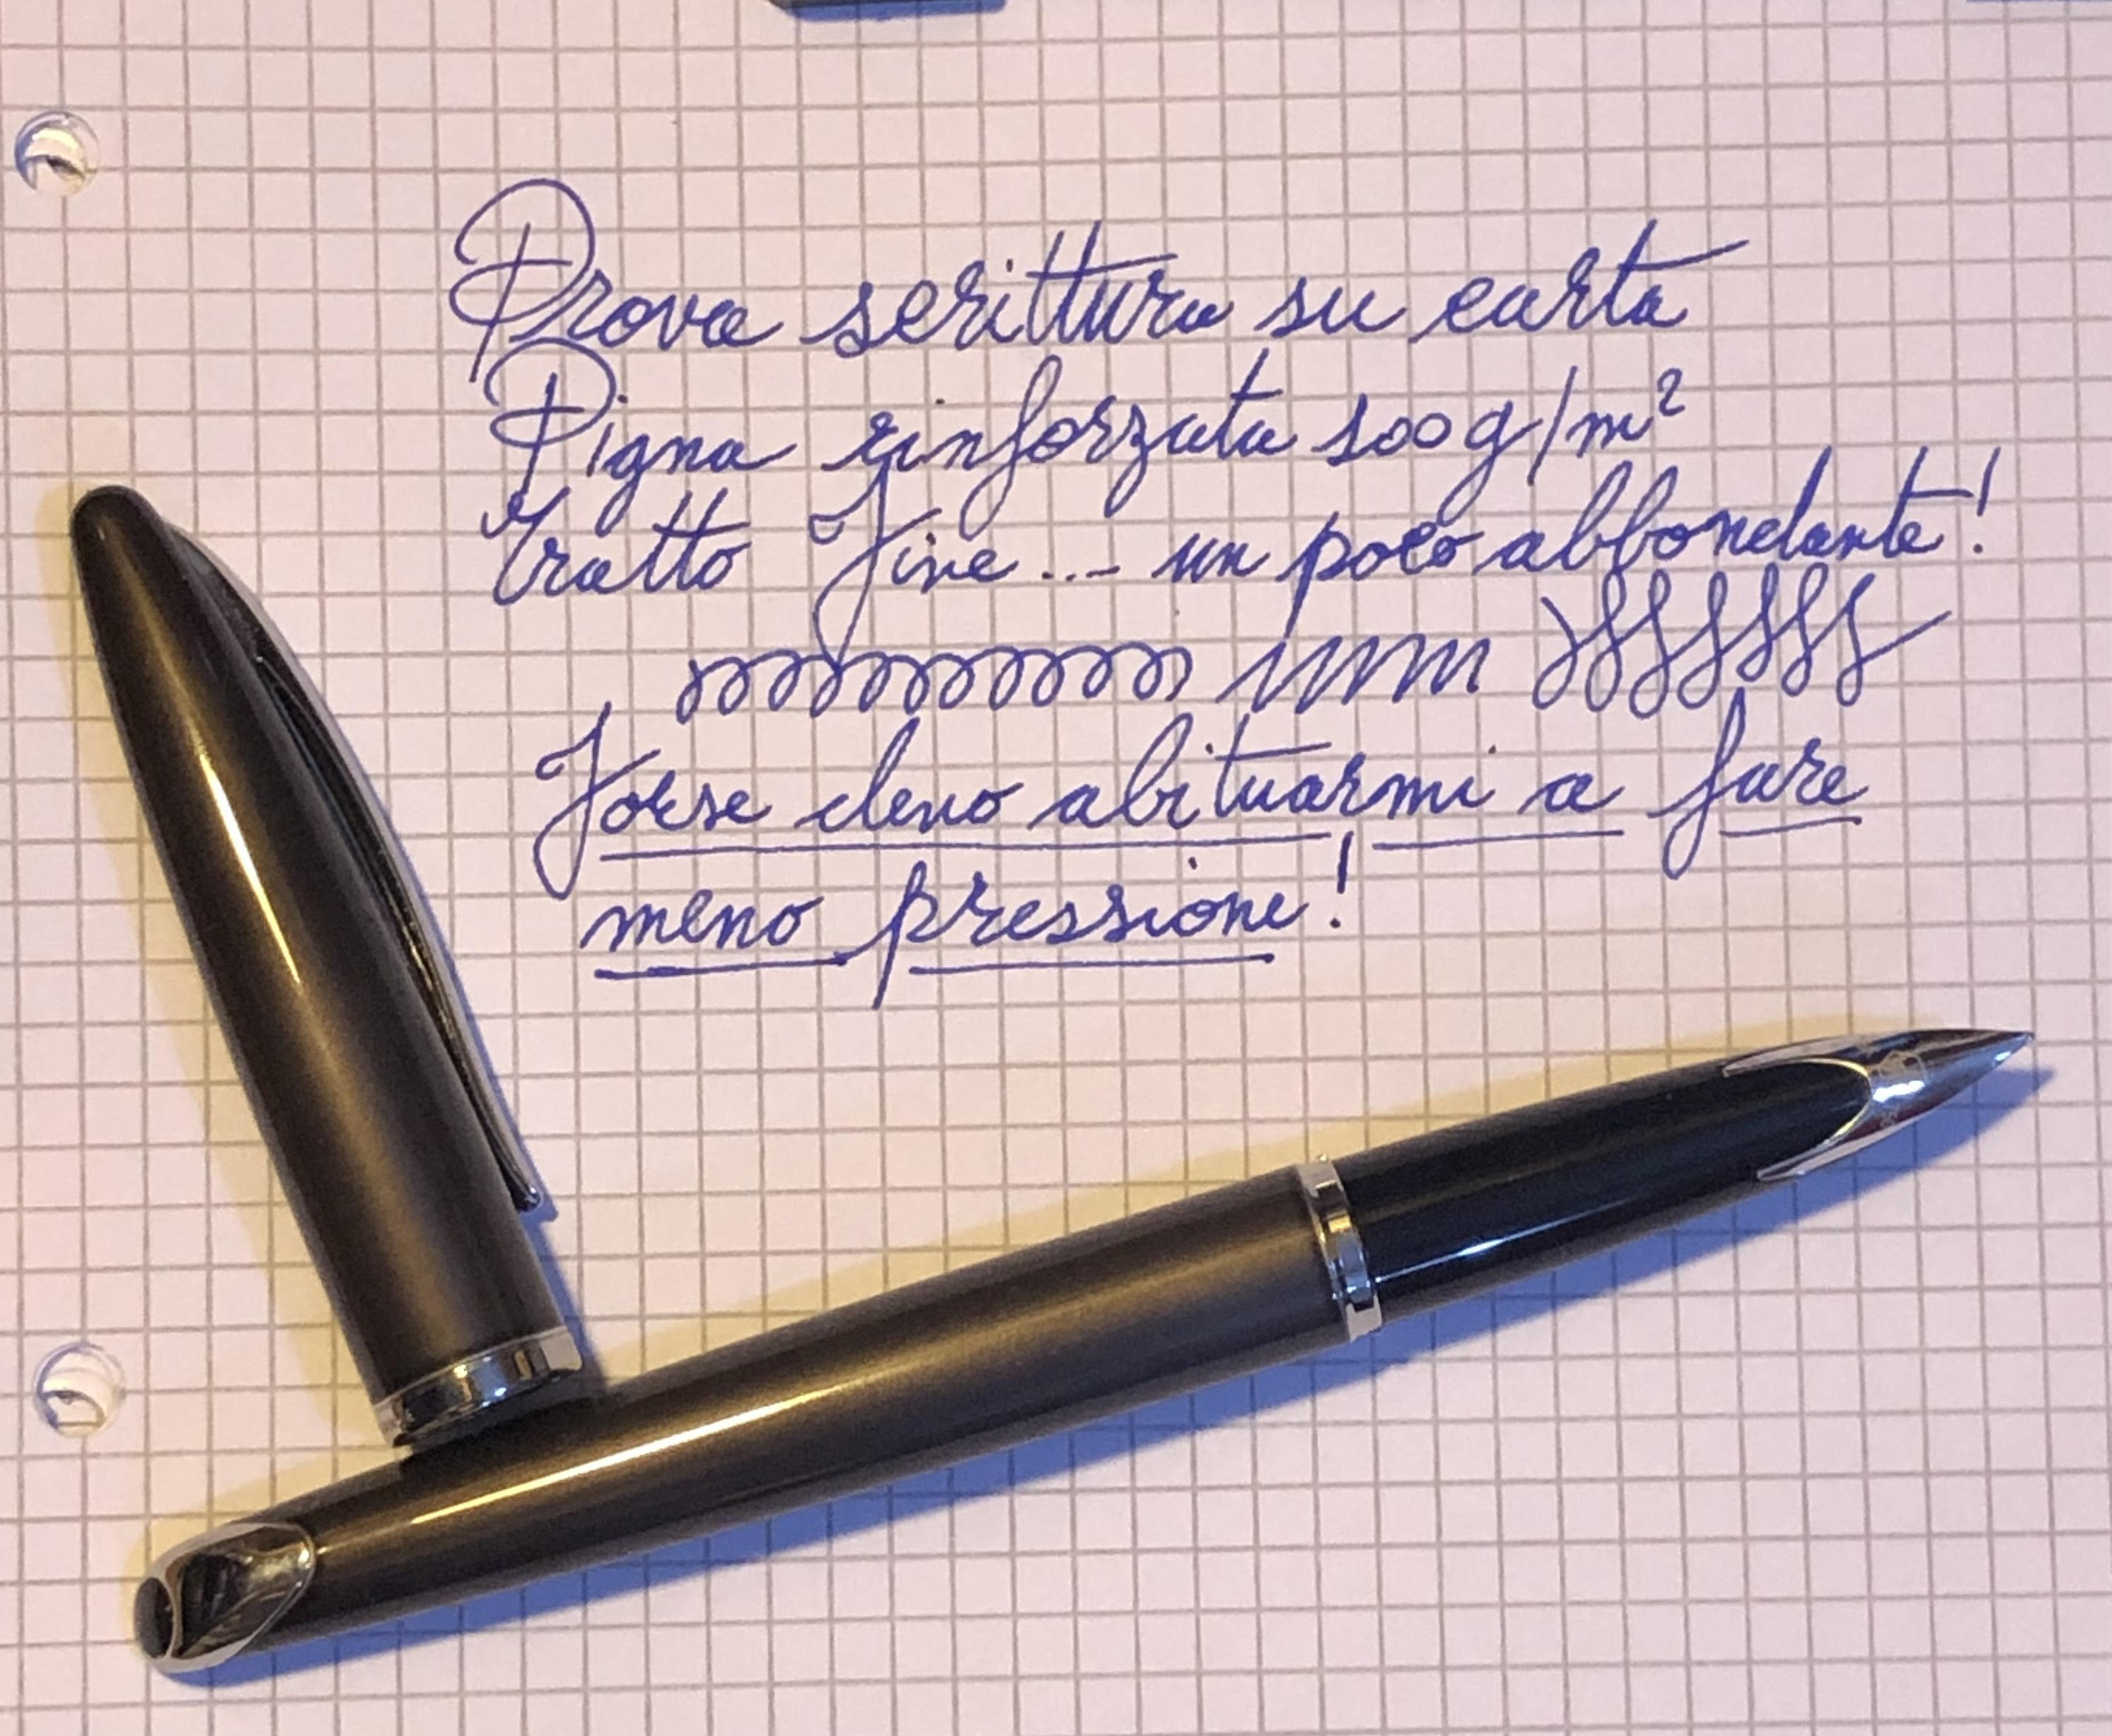 Prova scrittura su carta
Pigna rinforzata 100 g/m²
Tratto Fine... un poco abbondante!
Forse devo abituarmi a fare
meno pressione!